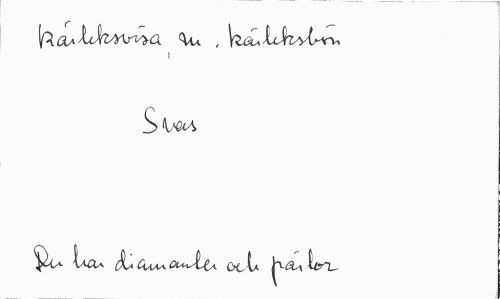 Kärleksvisa, m. kärleksbön
Svas
Du har diamanter och pärlor